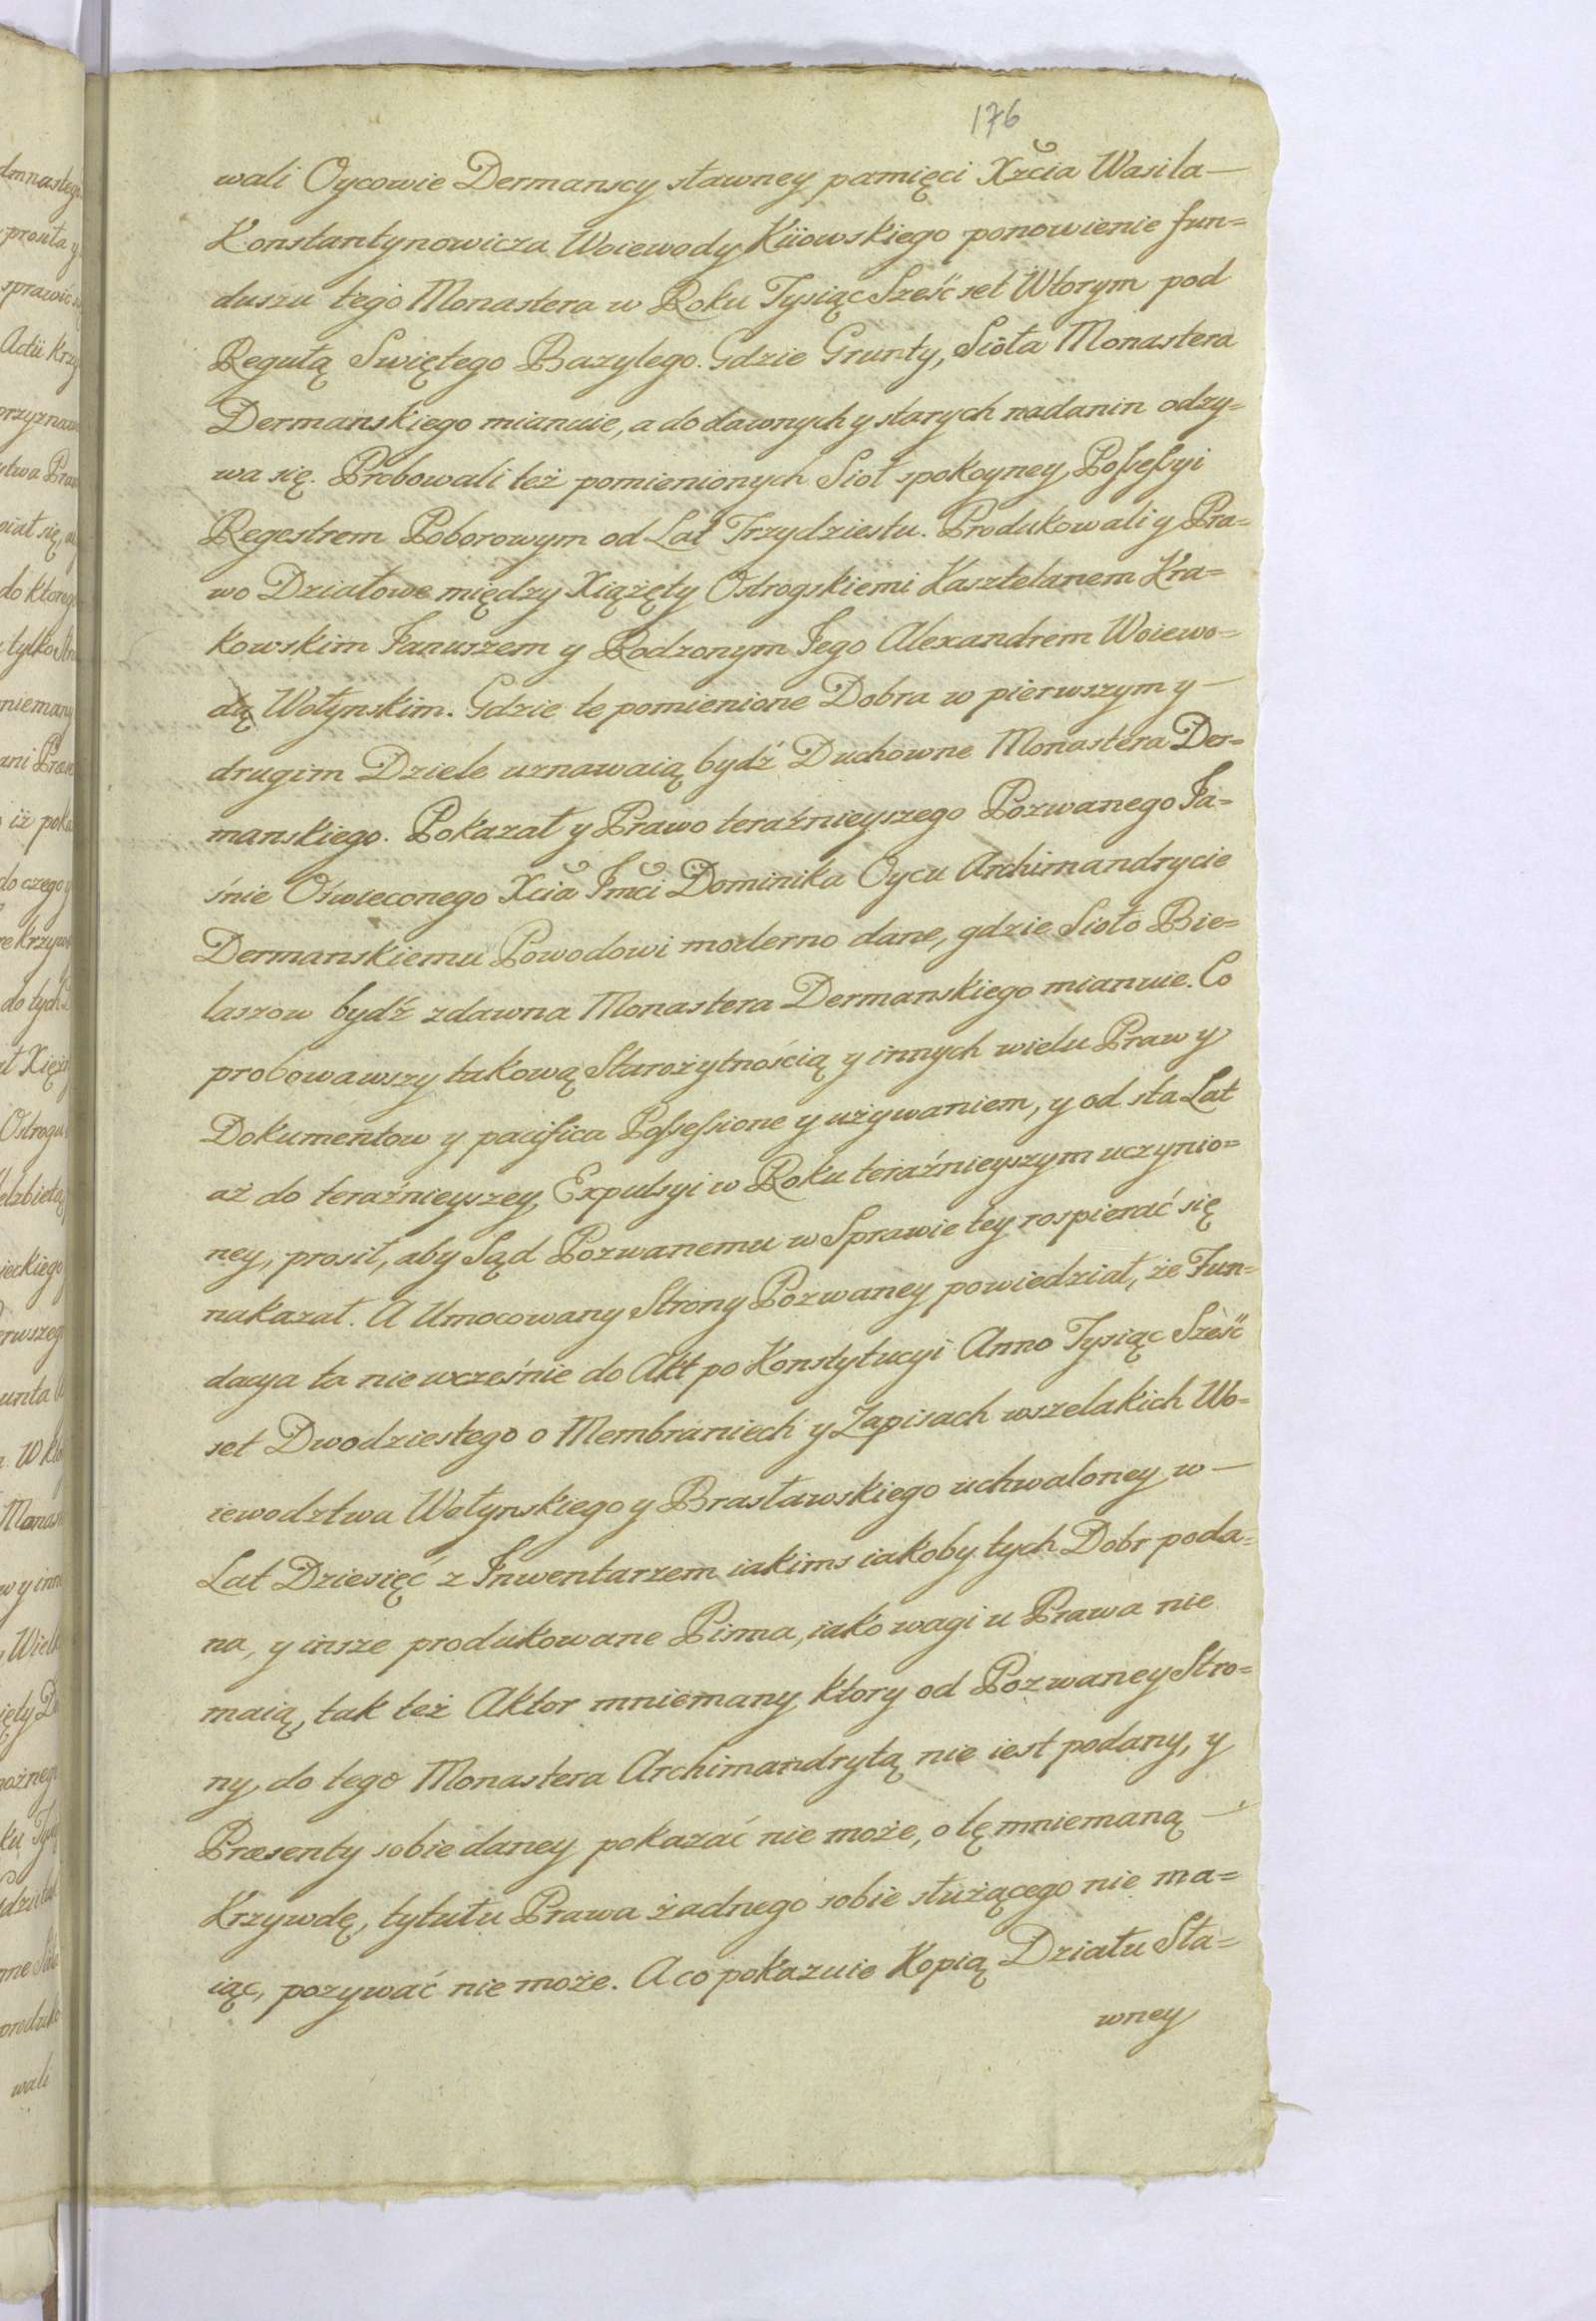 176
wali Oycowie Dermanscy sławney pamięci Xżcia Wasila —
Konstantynowicza Woiewody Kiiowskiego ponowienie fun=
duszu tego Monastera w Roku Tysiąc Sześć set Wtorym pod
Regułą Swiętego Bazylego. Gdzie Grunty, Sioła Monastera
Dermanskiego mianuie, a do dawnych y starych nadanin odzy=
wa się. Probowali też pomienionych Sioł spokoyney Possessyi
Regestrem Poborowym od Lat Trzydziestu. Produkowali y Pra=
wo Działowe między Xiążęty Ostrogskiemi Kasztelanem Kra=
kowskim Januszem y Rodzonym Jego Alexandrem Woiewo=
dą Wołynskim. Gdzie te pomienione Dobra w pierwszym y —
drugim Dziele uznawaią bydź Duchowne Monastera Der=
manskiego. Pokazał y Prawo teraźnieyszego Pozwanego Ja=
śnie Oświeconego Xcia Jmci Dominika Oycu Archimandrycie
Dermanskiemu Powodowi moderno dane, gdzie Sioło Bie=
laszow bydź zdawna Monastera Dermanskiego mianuie. Co
probowawszy takową Starożytnością y innych wielu Praw y
Dokumentow y pacifica Possessione y używaniem, y od sta Lat
aż do teraźnieyszey Expulsyi w Roku teraźnieyszym uczynio=
ney, prosił, aby Sąd Pozwanemu w Sprawie tey rospierać się
nakazał. A Umocowany Strony Pozwaney powiedział, że Fun=
dacya ta nie wcześnie do Akt po Konstytucyi Anno Tysiąc Sześć
set Dwodziestego o Membraniech y Zapisach wszelakich Wo=
iewodztwa Wołynskiego y Brasławskiego uchwaloney w —
Lat Dziesięć z Inwentarzem iakims iakoby tych Dobr poda=
na, y insze produkowane Pisma, iako wagi u Prawa nie
maią, tak też Aktor mniemany ktory od Pozwaney Stro=
ny do tego Monastera Archimandrytą nie iest podany, y
Præsenty sobie daney pokazać nie może, o tę mniemaną —
Krzywdę, tytułu Prawa żadnego sobie służącego nie ma=
iąc, pozywać nie może. A co pokazuie Kopią Działu Sła=
wney